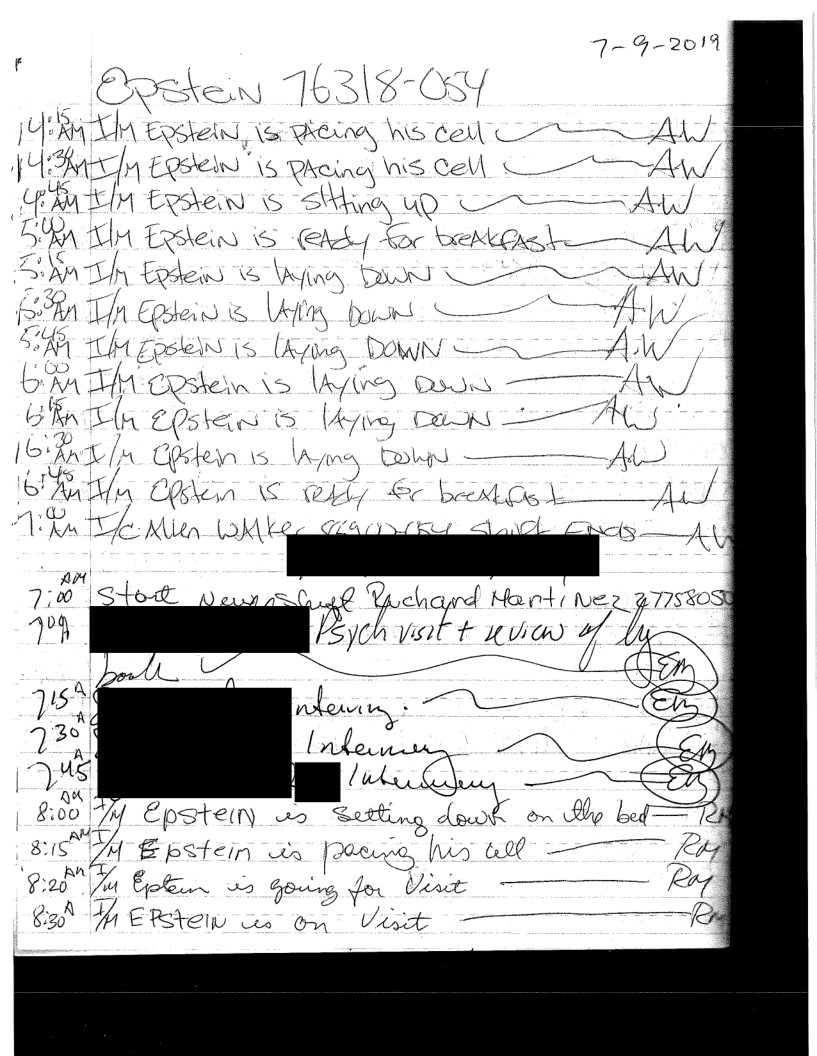 7-9-2019
Epstein 76318-054
4:15 AM I/M Epstein is pacing his cell AW
4:30 AM I/M Epstein is pacing his cell AW
4:45 AM I/M Epstein is sitting up AW
5:00 AM I/M Epstein is ready for breakfast AW
5:15 AM I/M Epstein is laying down AW
5:30 AM I/M Epstein is laying down A.W
5:45 AM I/M Epstein is laying DOWN A.W
6:00 AM I/M Epstein is laying down AW
6:15 AM I/M Epstein is laying down AW
6:30 AM I/M Epstein is laying down AW
6:45 AM I/M Epstein is ready for breakfast AW
7:00 AM I/C Allen Walker shift ENDS AW
7:00 AM Start New shift Richard Martinez 27758050
700 A Psych visit + review of log
book EM
715 A Interview. EM
730 A EM
745 A EM
8:00 AM I/M Epstein is setting down on the bed RM
8:15 AM I/M Epstein is pacing his cell RM
8:20 AM I/M Epstein is going for Visit RM
8:30 A I/M EPStein is on Visit RM